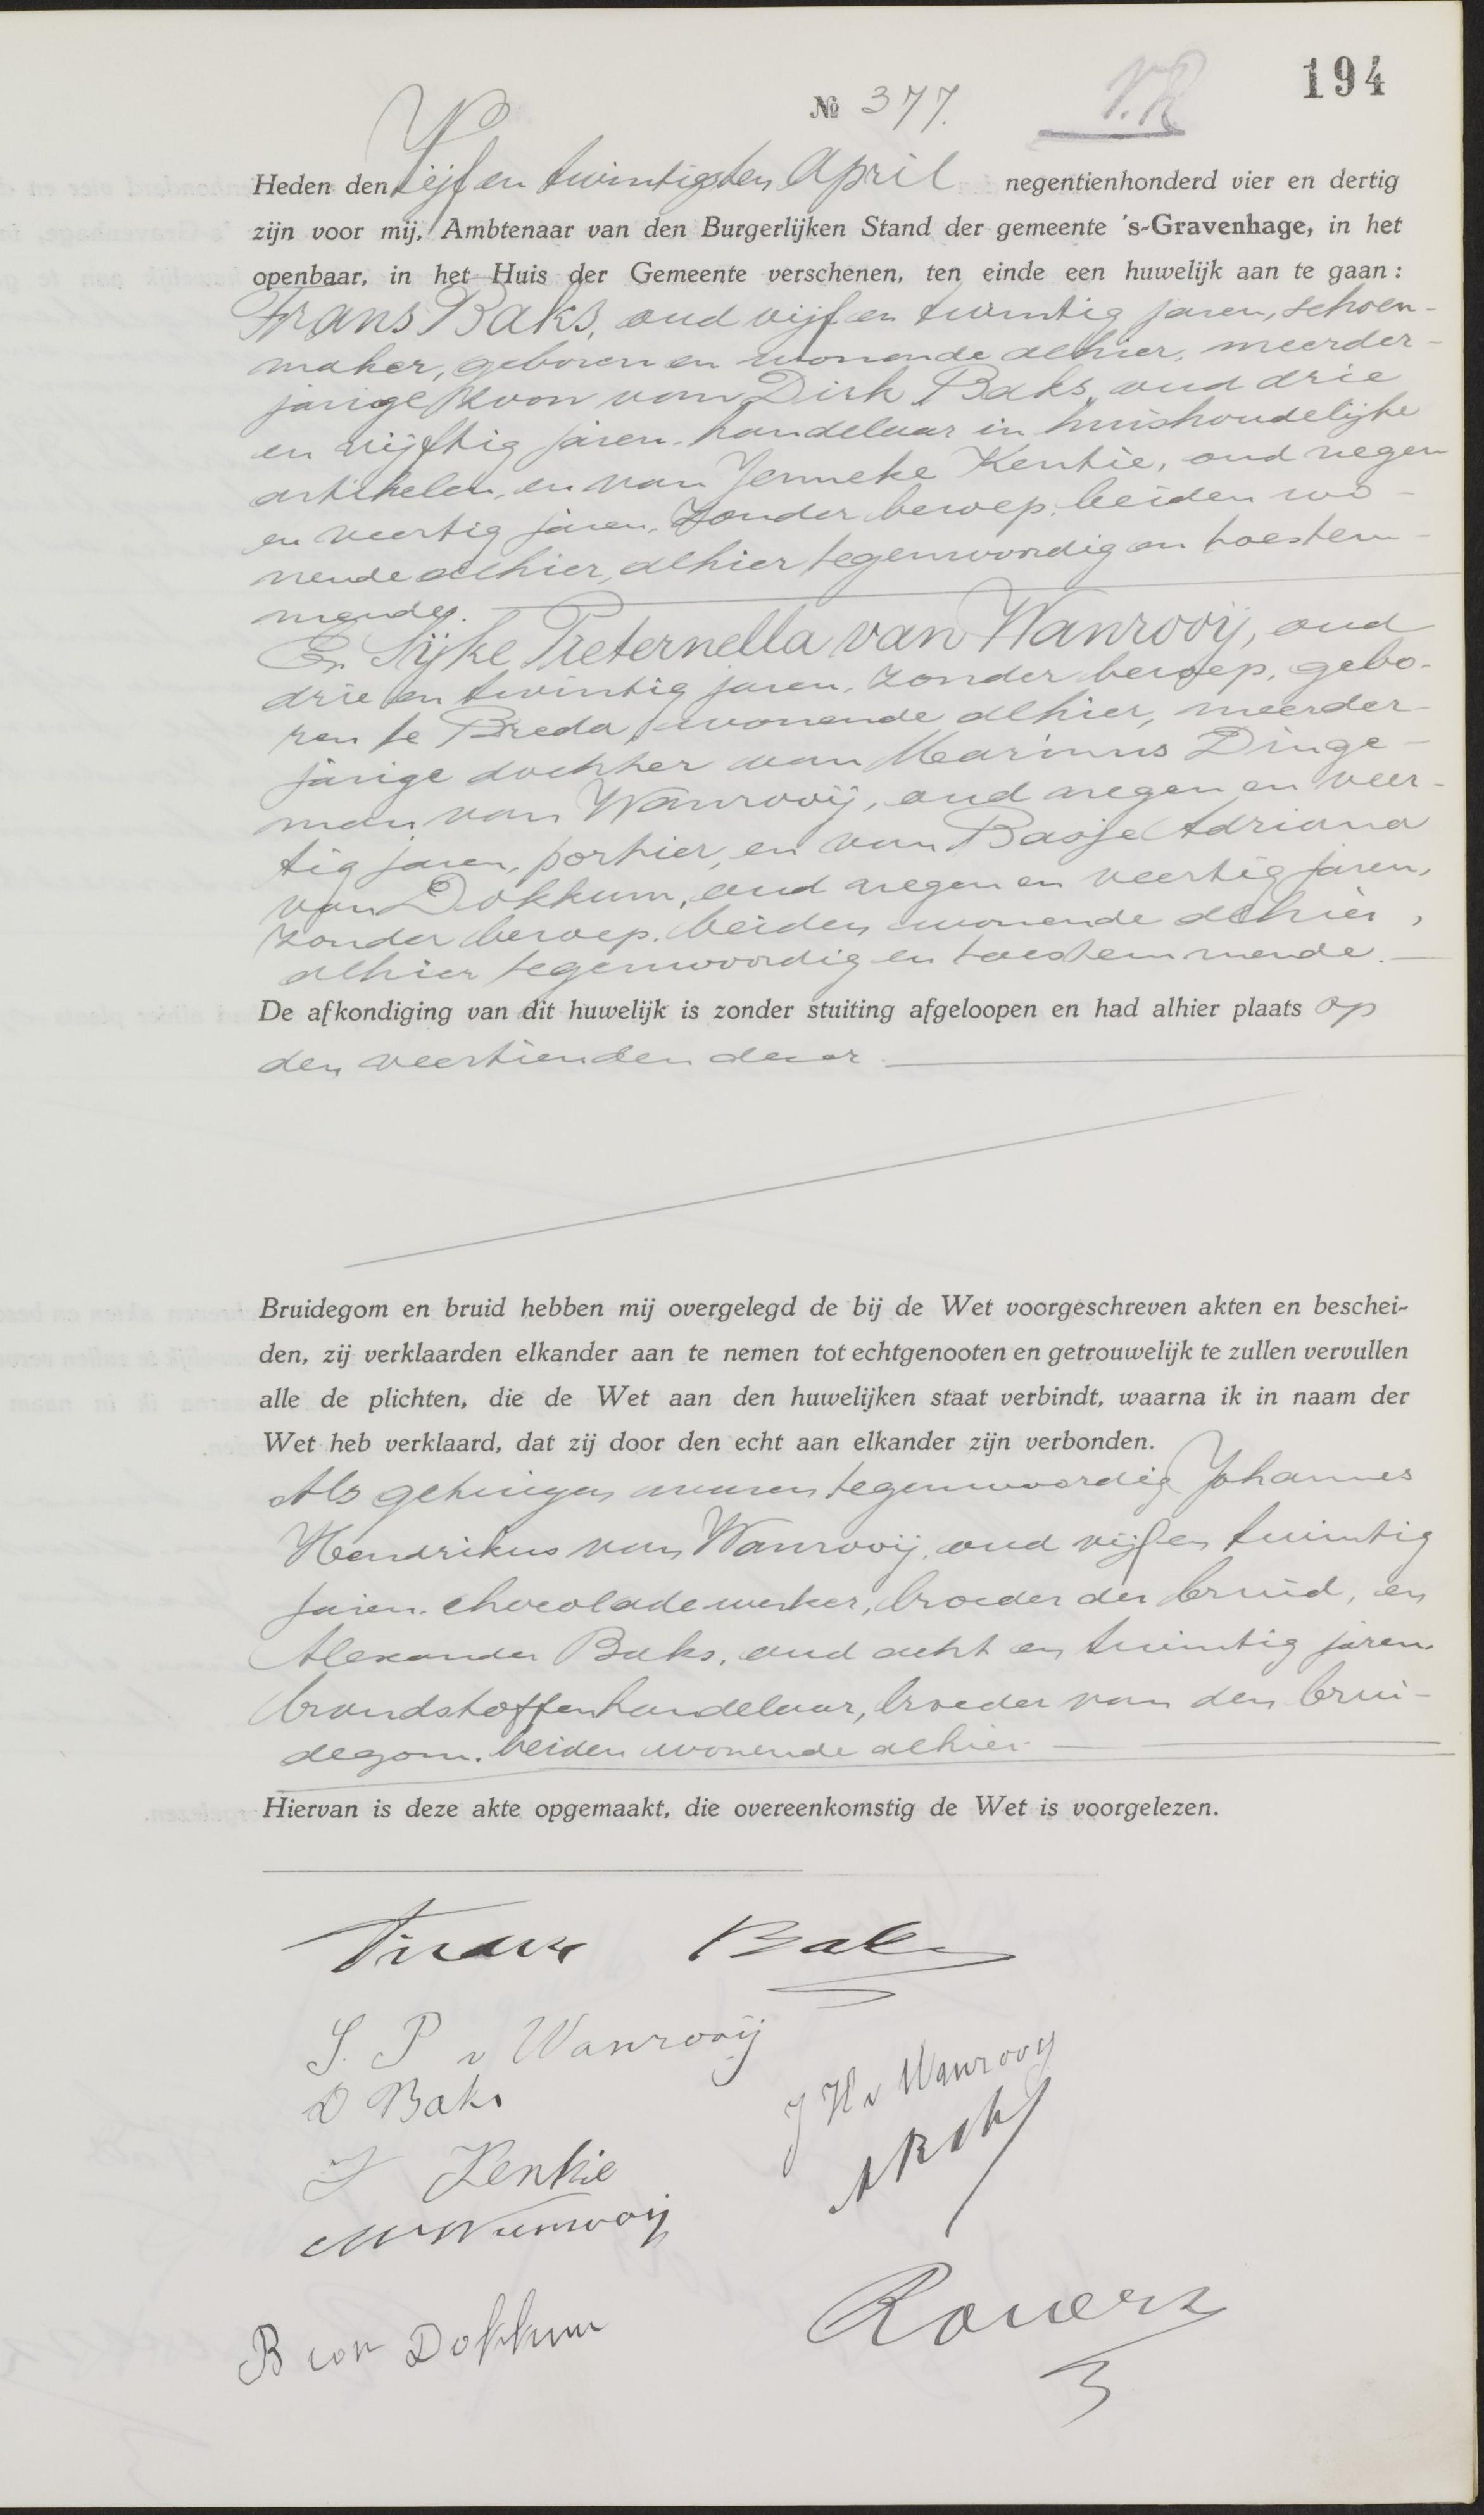 194
№ 377. V.R
Heden den Vijf en twintigsten April negentienhonderd vier en dertig
zijn voor mij, Ambtenaar van den Burgerlijken Stand der gemeente 's-Gravenhage, in het
openbaar, in het Huis der Gemeente verschenen, ten einde een huwelijk aan te gaan:
Frans Baks, oud vijf en twintig jaren, schoen-
maker, geboren en wonende alhier, meerder-
jarige zoon van Dirk Baks, oud drie
en vijftig jaren, handelaar in huishoudelijke
artikelen, en van Jenneke Kentie, oud negen
en veertig jaren, zonder beroep, beiden wo-
nende alhier, alhier tegenwoordig en toestem-
mende.
En Sijke Pieternella van Wanrooij, oud
drie en twintig jaren, zonder beroep, gebo-
ren te Breda, wonende alhier, meerder-
jarige dochter van Marinus Dinge-
man van Wanrooij, oud negen en veer-
tig jaren, portier, en van Baafje Adriana
van Dokkum, oud negen en veertig jaren,
zonder beroep, beiden wonende alhier,
alhier tegenwoordig en toestemmende.
De afkondiging van dit huwelijk is zonder stuiting afgeloopen en had alhier plaats op
den veertienden dezer
Bruidegom en bruid hebben mij overgelegd de bij de Wet voorgeschreven akten en beschei-
den, zij verklaarden elkander aan te nemen tot echtgenooten en getrouwelijk te zullen vervullen
alle de plichten, die de Wet aan den huwelijken staat verbindt, waarna ik in naam der
Wet heb verklaard, dat zij door den echt aan elkander zijn verbonden.
Als getuigen waren tegenwoordig Johannes
Hendrikus van Wanrooij, oud vijf en twintig
jaren, chocoladewerker, broeder der bruid, en
Alexander Baks, oud acht en twintig jaren,
brandstoffenhandelaar, broeder van den brui-
degom, beiden wonende alhier.
Hiervan is deze akte opgemaakt, die overeenkomstig de Wet is voorgelezen.
Frans Baks
S. P v Wanrooij
J H v Wanrooy
D Baks
A Baks
J Kentie
M v Wanrooij
B van Dokkum